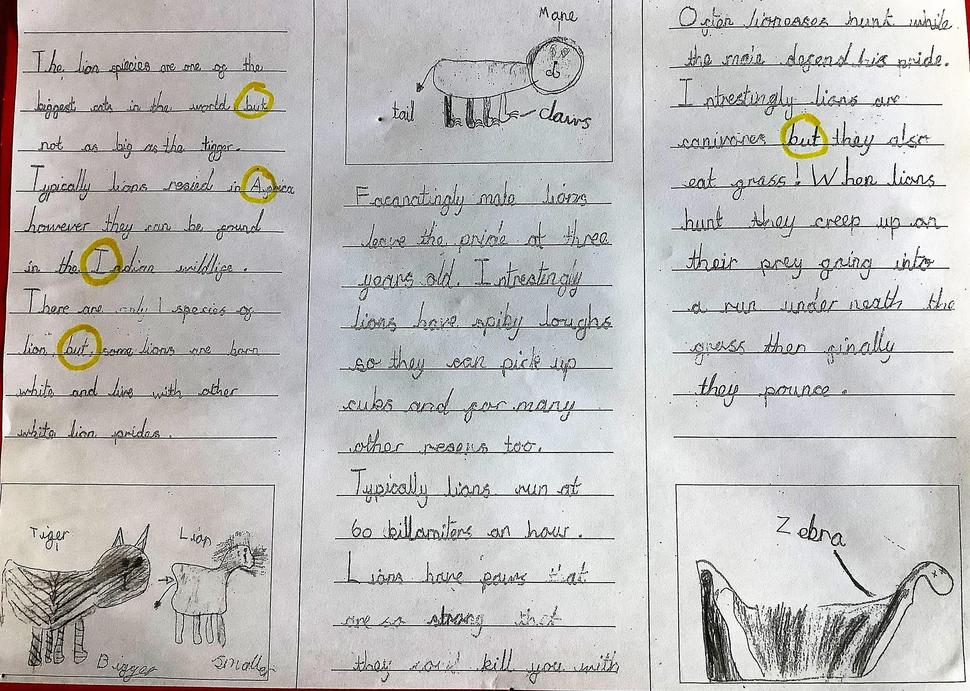 The lion species are one of the
biggest cats in the world but
not as big as the tigger.
Typically lions resied in Africa
however they can be found
in the Indian wildlife.
There are only 1 species of
lion, but, some lions are born
white and live with other
white lion prides.
Tiger
Lion
Bigger
Smaller
Mane
tail
claws
Facanatingly male lions
leave the pride at three
years old. Intrestingly
lions have spiky toughs
so they can pick up
cubs and for many
other resons too.
Typically lions run at
60 killamiters an hour.
Lions have paws that
are so strong that
they could kill you with
Often lionesses hunt while
the male defend his pride.
Intrestingly lions are
canivores but they also
eat grass! When lions
hunt they creep up on
their prey going into
a run under neath the
grass then finally
they pounce.
Zebra